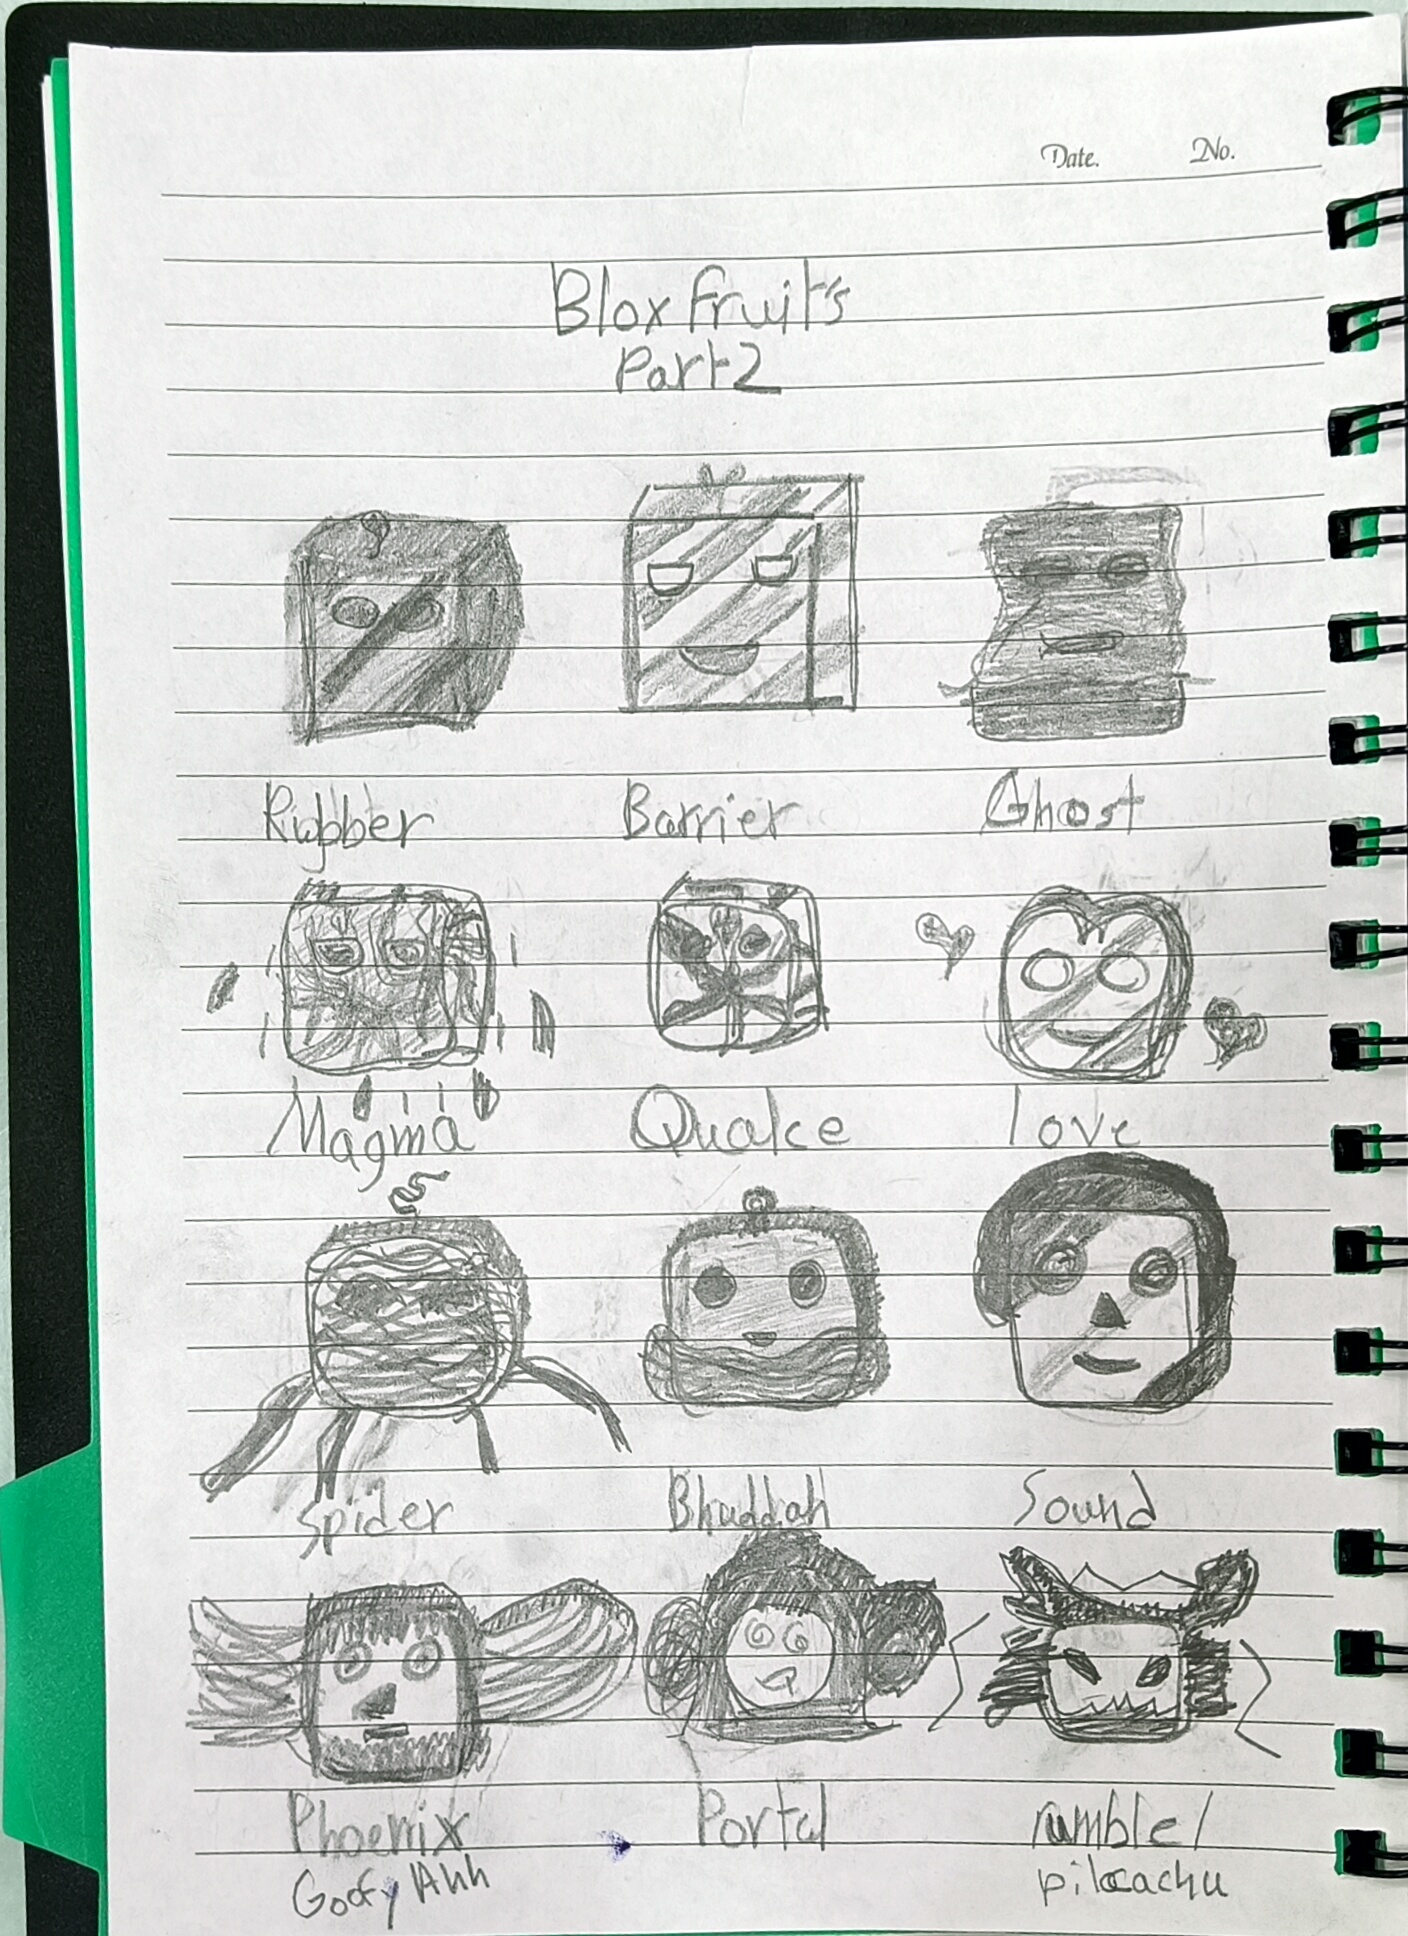 Date. No.
Blox fruit's
Part 2
Rubber Barrier Ghost
Magma Quake love
Spider Bhuddah Sound
Phoenix Portal rumble/
Goofy Ahh pikacachu